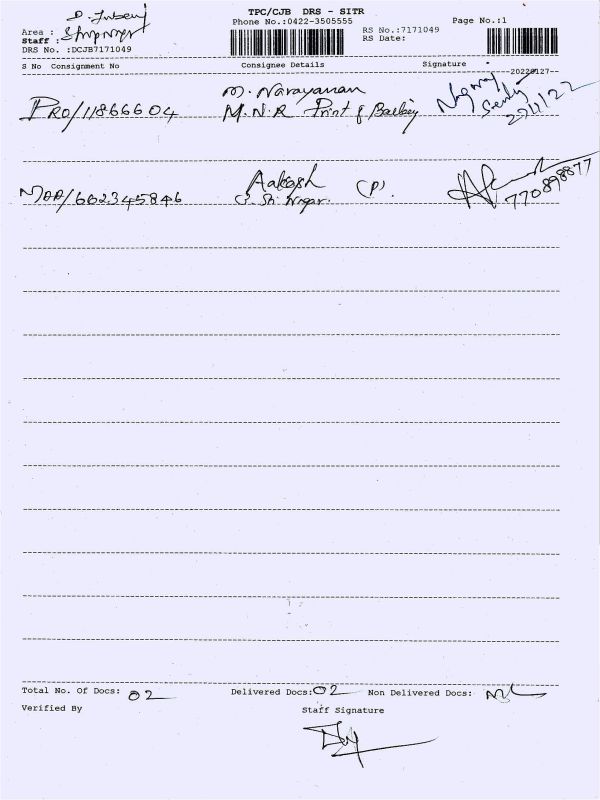 TPC/CJB DRS - SITR
Phone No.:0422-3505555
Page No.:1
Area :
Staff :
DRS No. :DCJB7171049
RS No.:7171049
RS Date:
S No Consignment No Consignee Details Signature
20220127
PRO/11866604 M. Narayanan
M.N.R Print &
27/1/22
602345846 Aakash (P).
770898877
Total No. Of Docs: 02 Delivered Docs: 02 Non Delivered Docs: NIL
Verified By Staff Signature